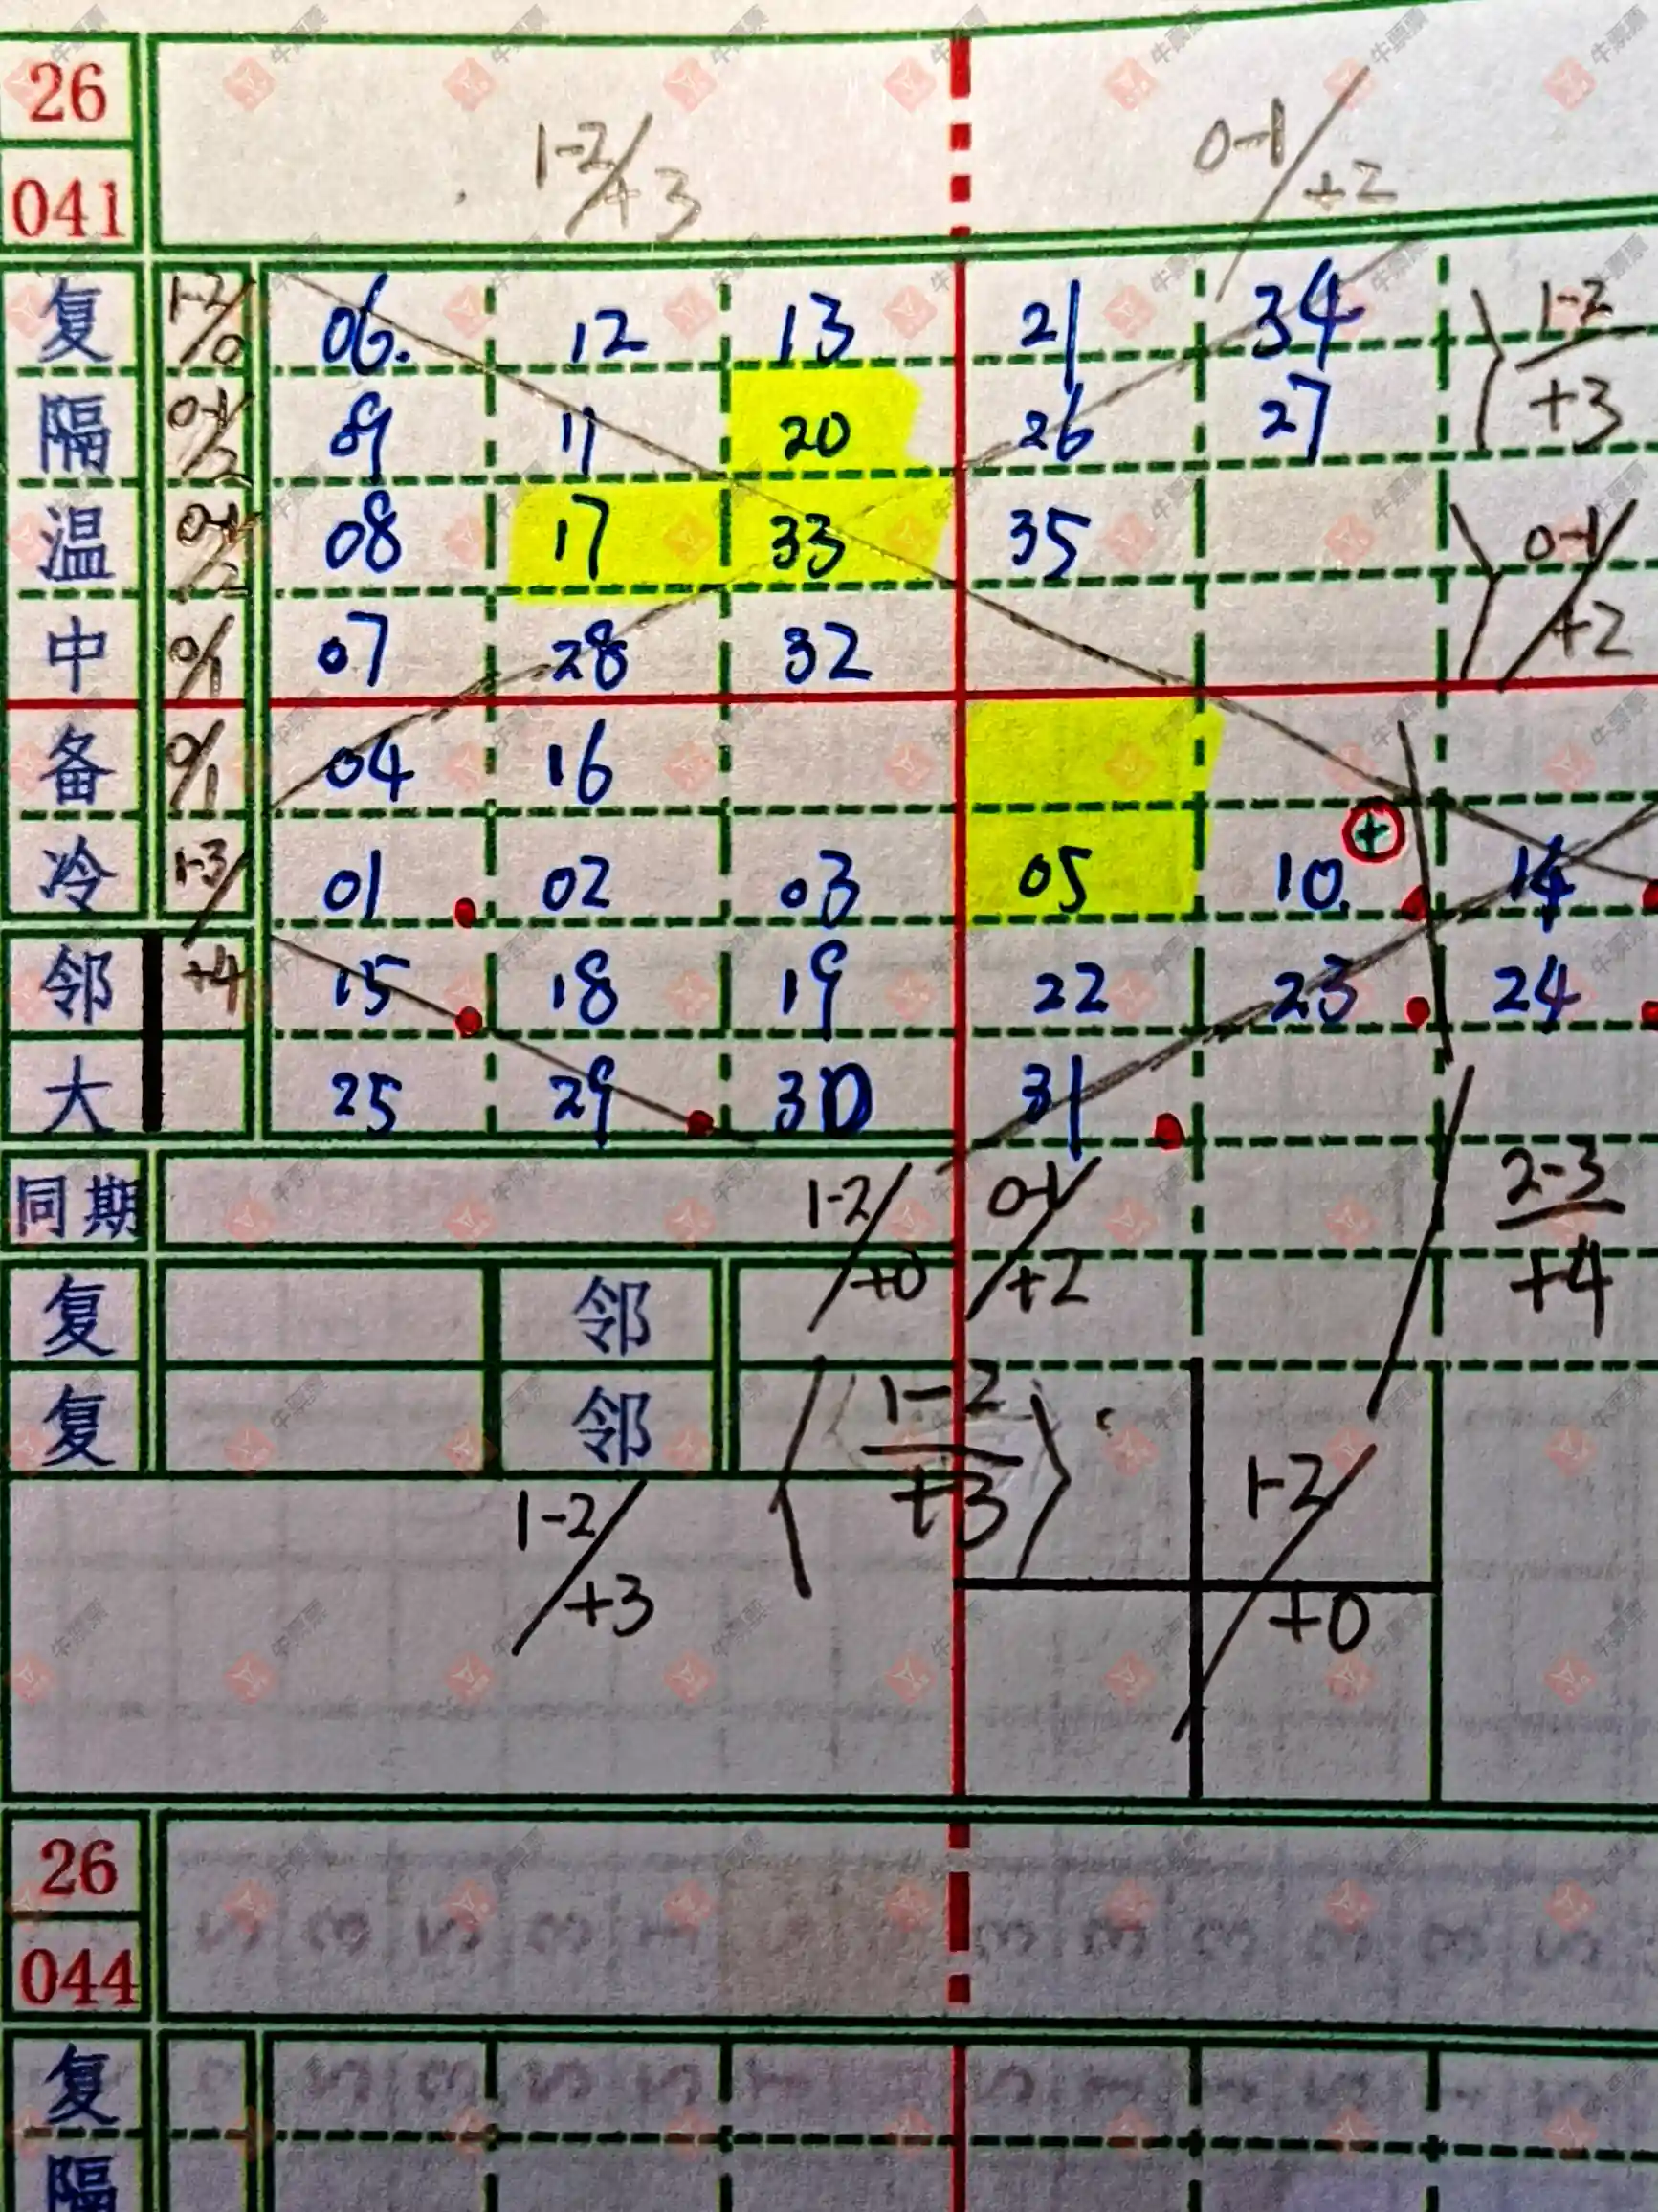 26
041
1-2/+3 0-1/+2
复 1-2/0 06. 12 13 21 34 1-2/+3
隔 0-1/2 09 11 20 26 27
温 0-1/2 08 17 33 35 0-1/+2
中 0/1 07 28 32
备 0/1 04 16
冷 1-3/+4 01 02 03 05 10. + 14
邻 15 18 19 22 23 24
大 25 29 30 31
同期 1-2/+0 0-1/+2 2-3/+4
复 邻
复 邻 1-2/+3 1-2/+0
1-2/+3
26
044
复
隔
牛票票